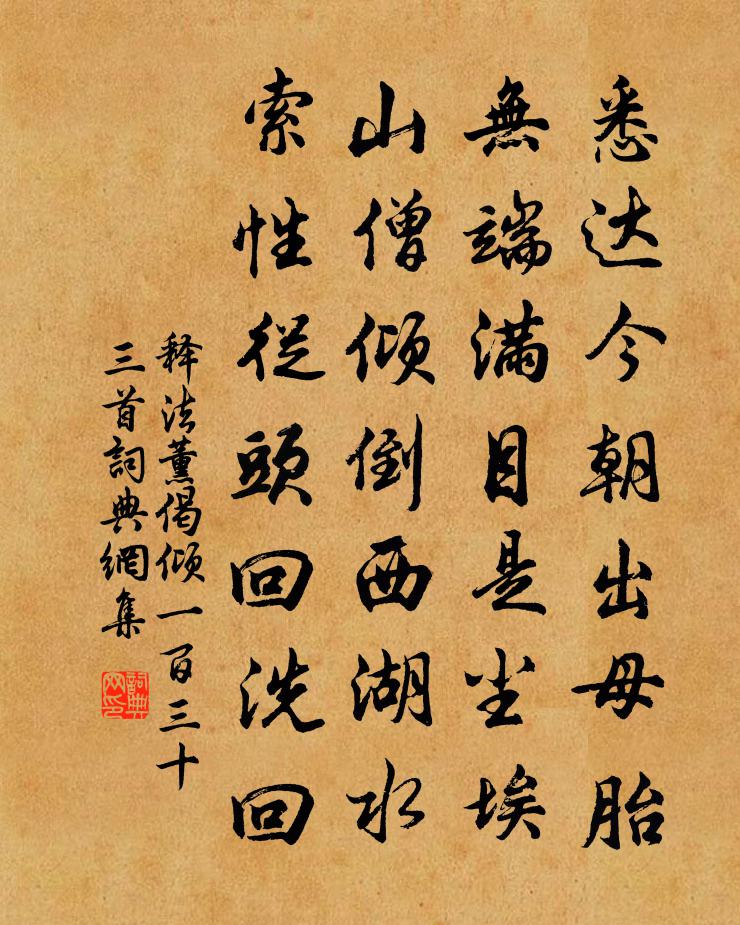 悉达今朝出母胎
無端满目是尘埃
山僧倾倒西湖水
索性從頭回洗回
释法薰偈倾一百三十
三首詞典網集
詞典网印